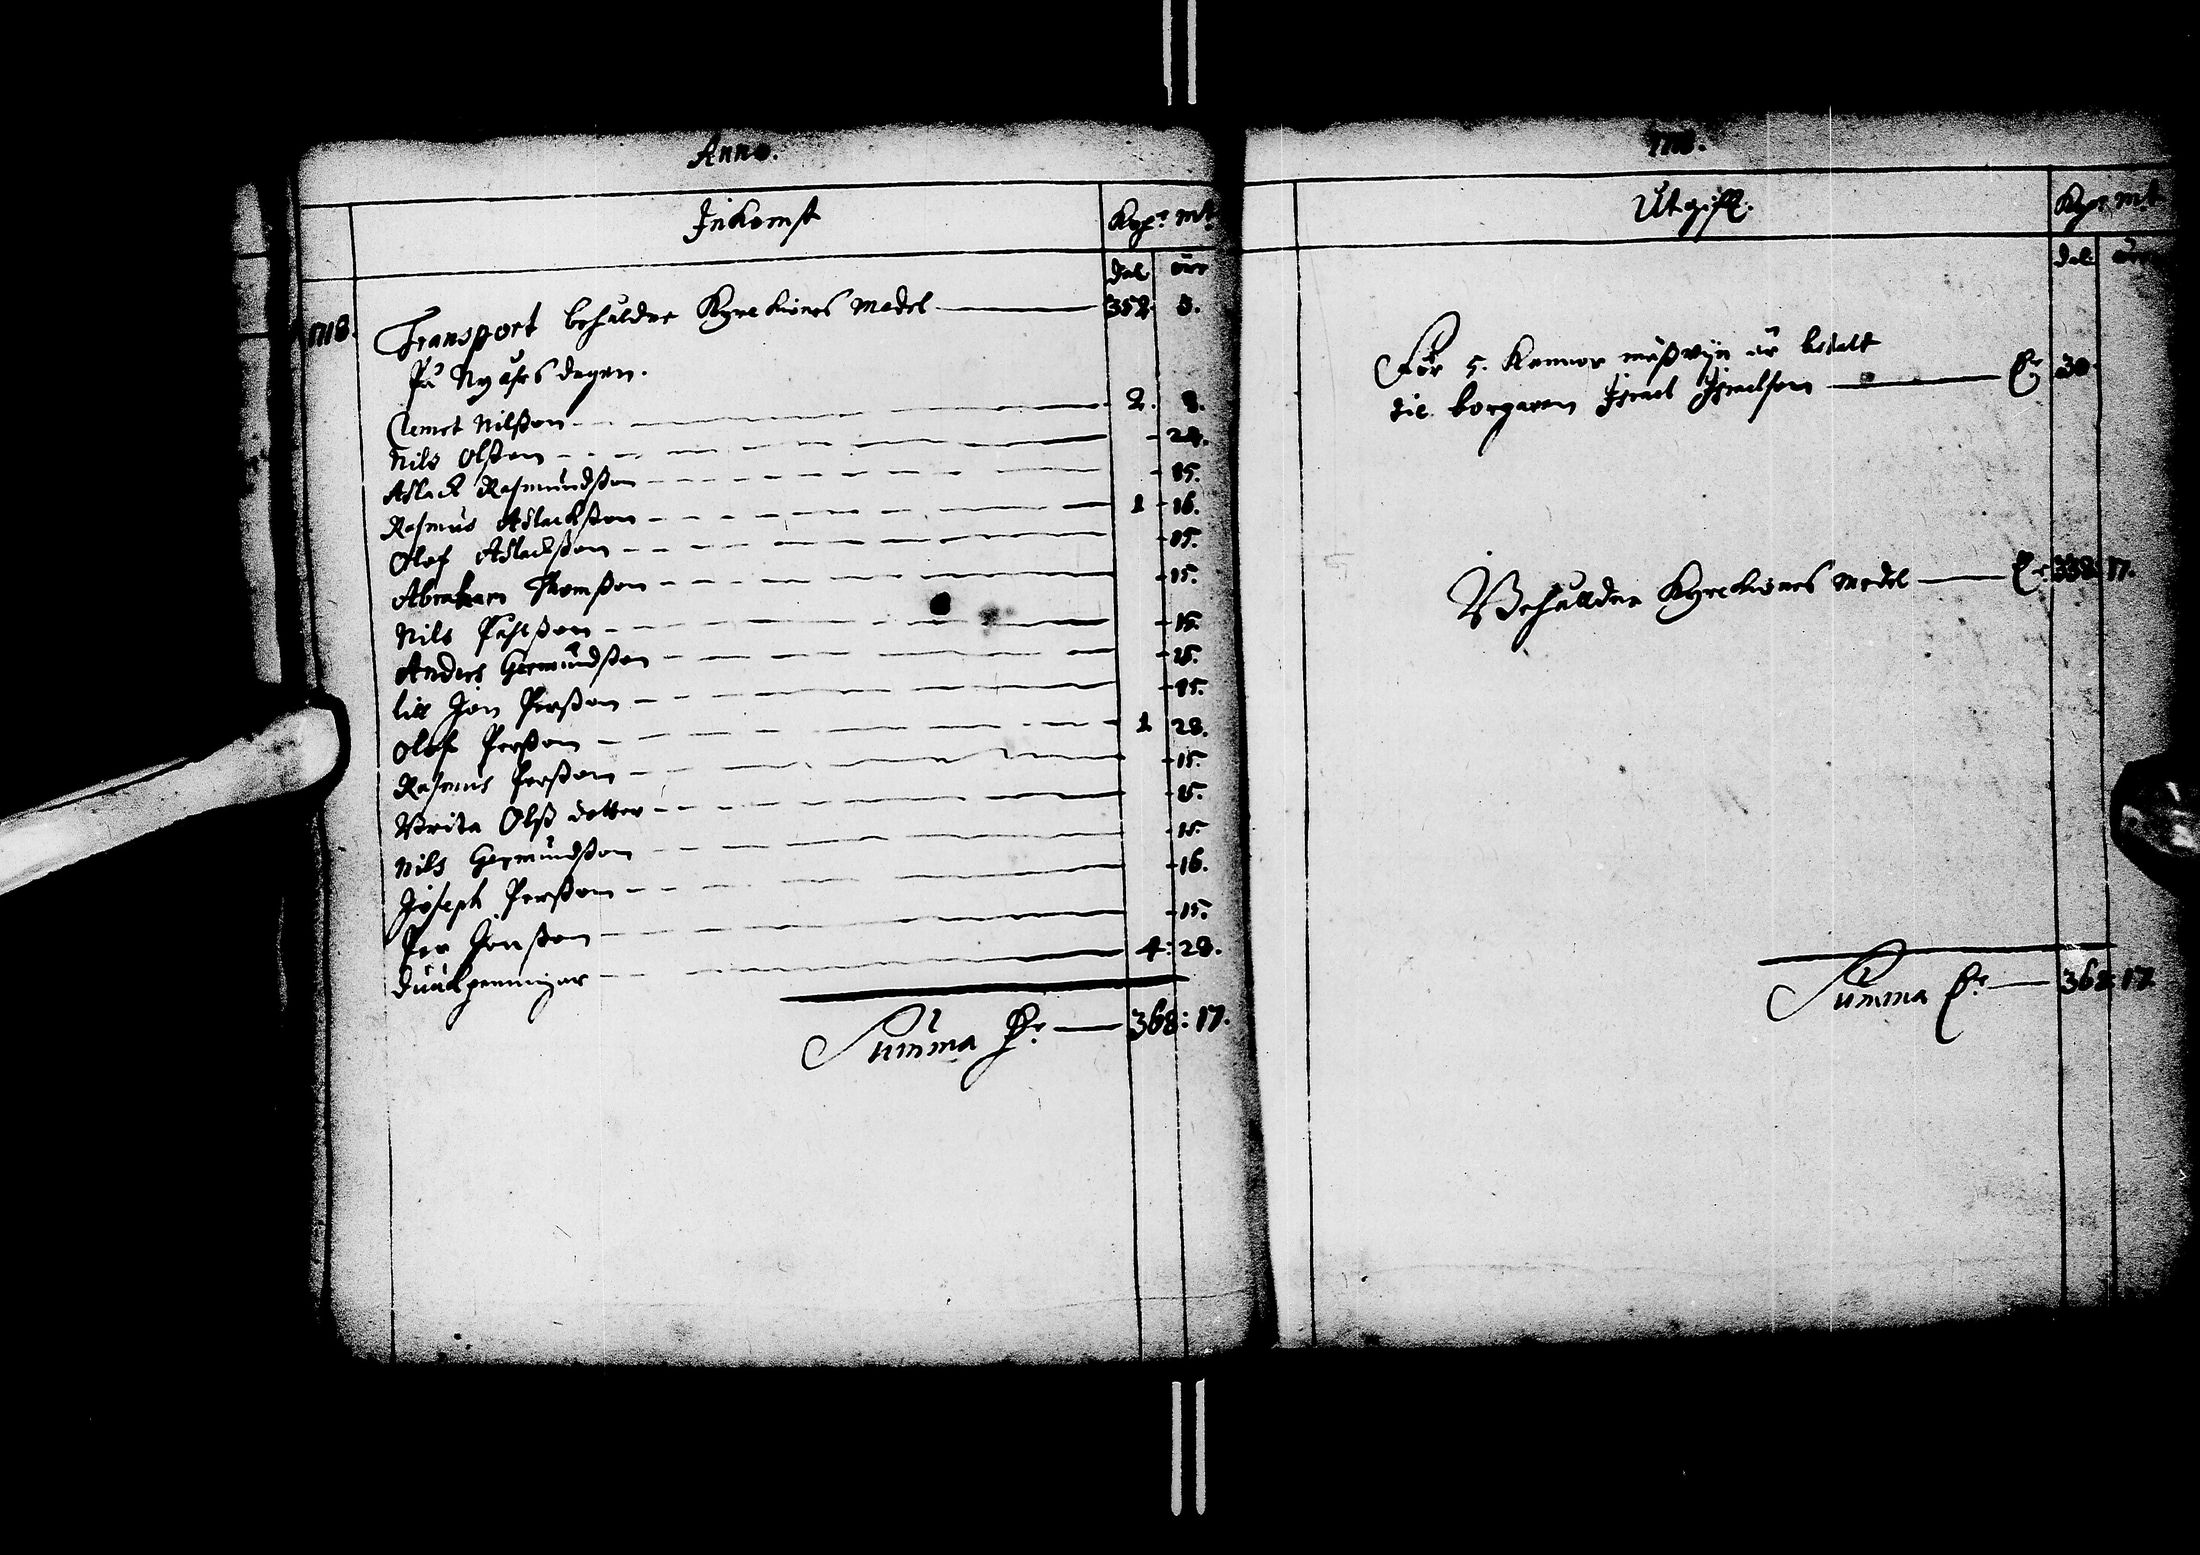 Anno.
Inkomst Kop:r mt:
dal öre
1718. Transport behåldne Kyrckiones medel 352 3.
På Nyåhrsdagen.
Clemet Nilßon 2. 8.
Nils Olßon 24.
Aslack Rasmundßon 15.
Rasmus Aslackßon 1 16.
Olof Aslackßon 15.
Abraham Thomßon 15.
Nils Påhlßon 15.
Anders Germundßon 15.
lill Jon Perßon 15.
Olof Perßon 1 28.
Rasmus Perßon 15.
Brita Olß dotter 15.
Nils Germundßon 15.
Joseph Perßon 16.
Per Jonßon 15.
duukpenningar 4: 28.
Summa Dr 368: 17.
1718.
Utgifft. Kop:r mt
dal öre
För 5. Kannor mäßwijn är betalt
til borgaren Israel Israelson Dr 30.
Behåldne Kyrckiones medel Dr 338: 17.
Summa Dr 368: 17.